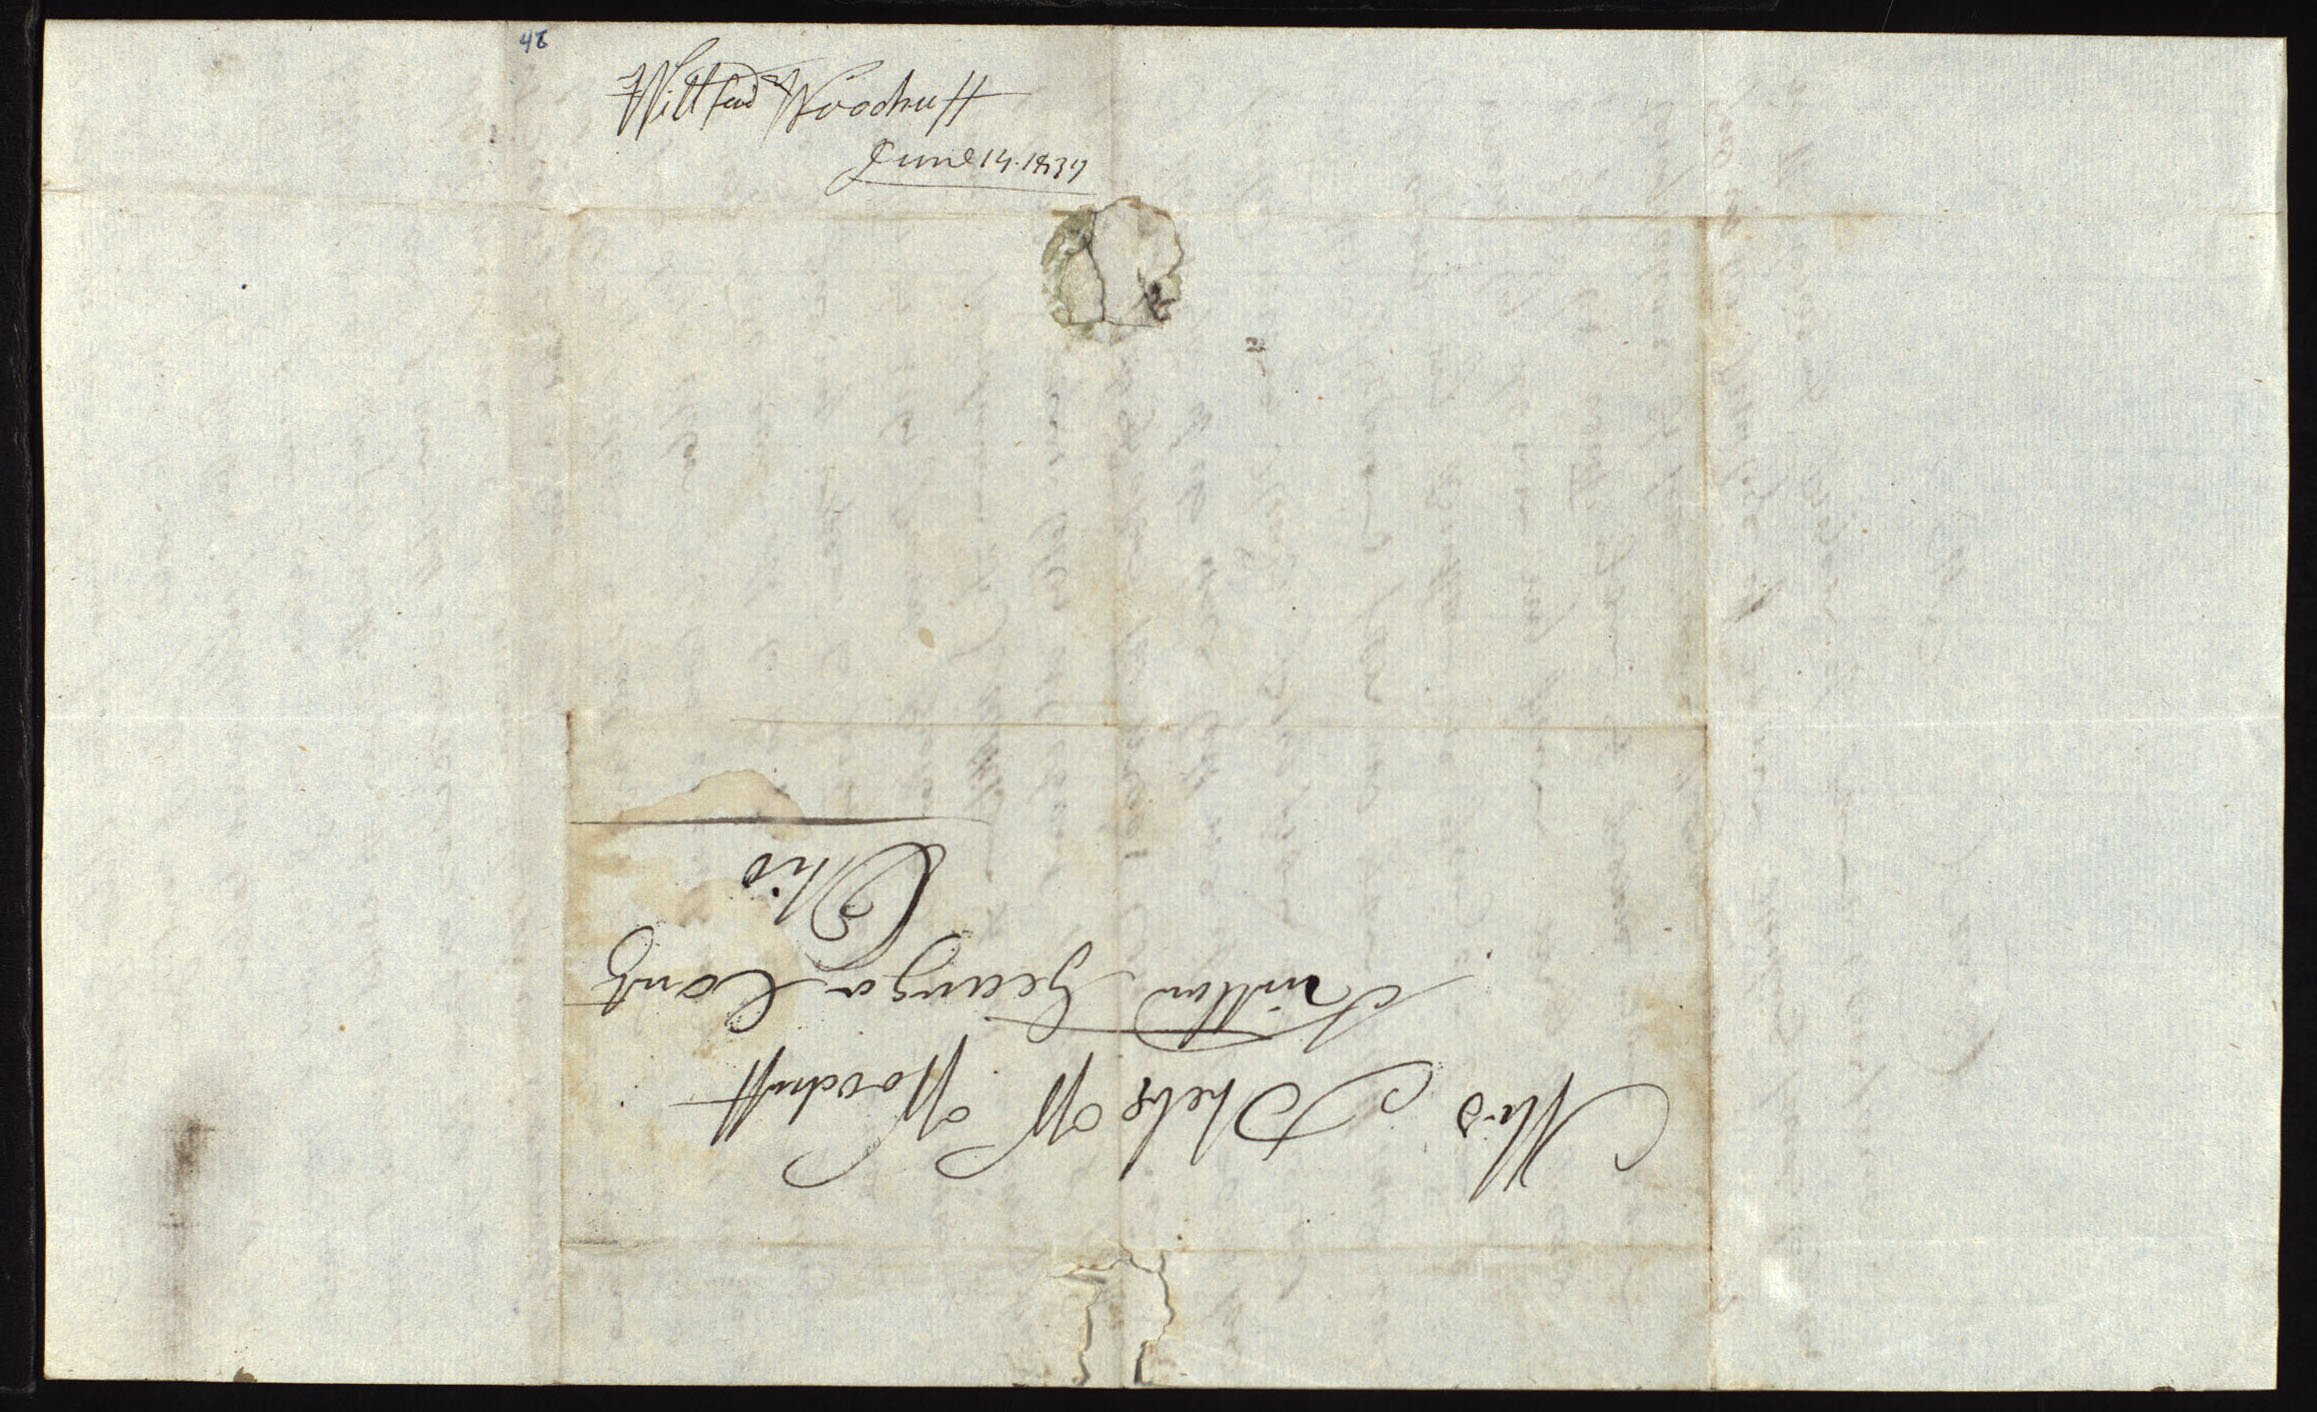 48
Willford Woodruff
June 14. 1837
Mrs Phebe W Woodruff
Kirtland Geauga Conty
Ohio